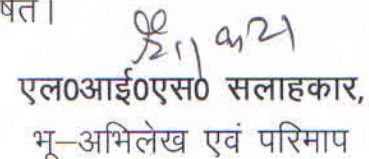 षत।
एल0आई0एस0 सलाहकार,
भू–अभिलेख एवं परिमाप